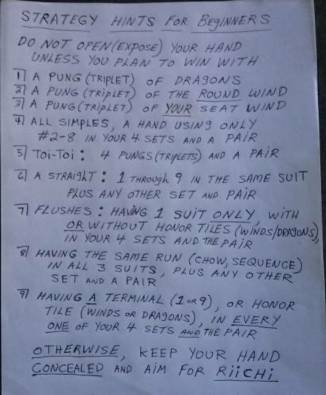 STRATEGY HINTS FOR BEGINNERS
DO NOT OPEN (EXPOSE) YOUR HAND
UNLESS YOU PLAN TO WIN WITH
1) A PUNG (TRIPLET) OF DRAGONS
2) A PUNG (TRIPLET) OF THE ROUND WIND
3) A PUNG (TRIPLET) OF YOUR SEAT WIND
4) ALL SIMPLES, A HAND USING ONLY
#2-8 IN YOUR 4 SETS AND A PAIR
5) TOI-TOI: 4 PUNGS (TRIPLETS) AND A PAIR
6) A STRAIGHT: 1 THROUGH 9 IN THE SAME SUIT
PLUS ANY OTHER SET AND PAIR
7) FLUSHES: HAVING 1 SUIT ONLY, WITH
OR WITHOUT HONOR TILES (WINDS/DRAGONS),
IN YOUR 4 SETS AND THE PAIR
8) HAVING THE SAME RUN (CHOW, SEQUENCE)
IN ALL 3 SUITS, PLUS ANY OTHER
SET AND A PAIR
9) HAVING A TERMINAL (1 OR 9), OR HONOR
TILE (WINDS OR DRAGONS), IN EVERY
ONE OF YOUR 4 SETS AND THE PAIR
OTHERWISE, KEEP YOUR HAND
CONCEALED AND AIM FOR RIICHI.